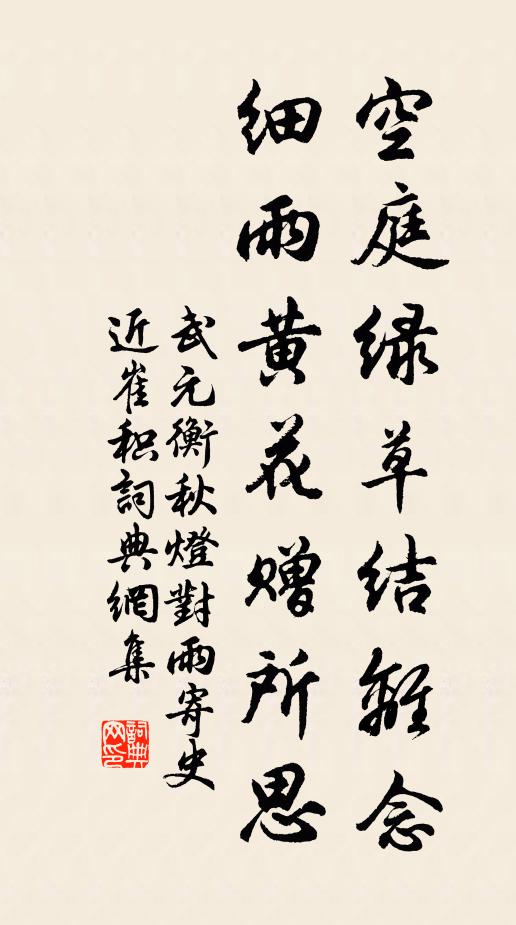 空庭绿草结離念
细雨黄花赠所思
武元衡秋燈對雨寄史
近崔积詞典網集
詞典
网印